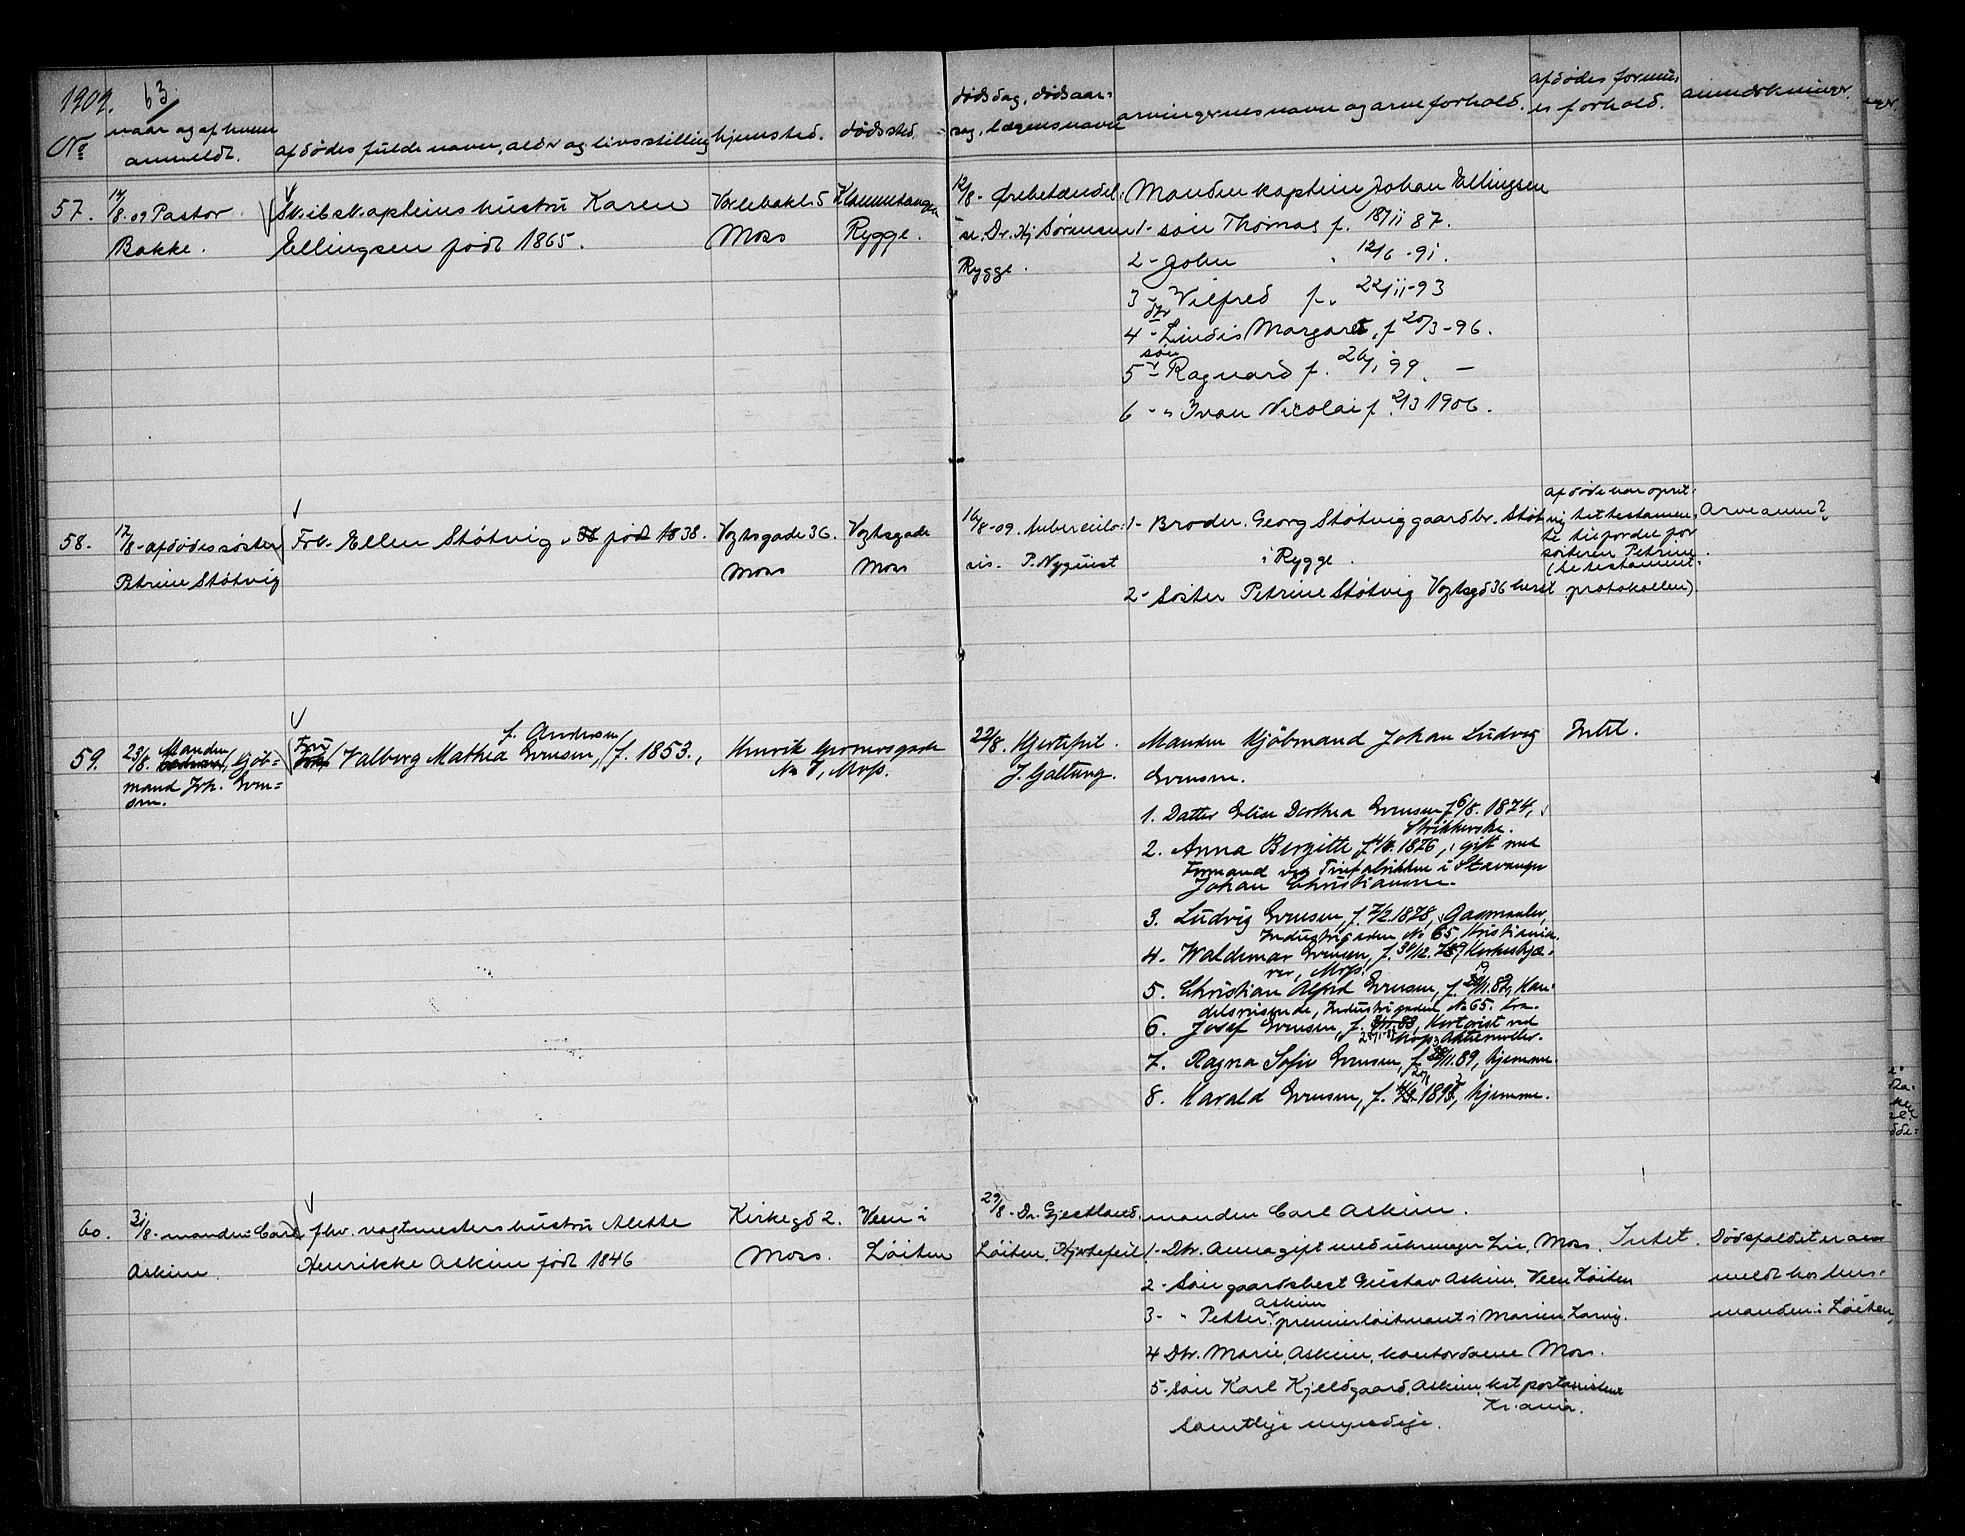 1909. 63.
No
naar og af hvem
anmeldt.
afdødes fulde navn, alder og livsstilling
hjemsted.
dødssted.
dødsdag, dødsaar-
sag, lægens navn
arvingernes navn og arveforhold.
afdødes formu-
es forhold.
anmerkninger.
57. 14/8. 09 Pastor
Bakke.
Skibskapteins hustru Karen
Ellingsen født 1865.
Varlebakk. 5
Moss
Rygge.
12/8 - Ørebetændel-
se, Dr. Hj Sørensen
Rygge.
Manden kaptein Johan Ellingsen
1- søn Thomas f. 18/11 87.
2- John " 12/6 - 91.
3 - Wilfred f. 22/11-93
dtr
4 - Lindis Margaret, f 20/3 - 96.
søn
5 - Ragnard f. 26/1 99. —
6 - " Ivan Nicolai f. 2/3 1906.
58. 17/8 - afdødes søster
Petrine Støtvig
Frk. Ellen Støtvig, født 1838.
Vogtsgade 36.
Moss
Vogtsgade
Moss
16/8-09. tuberculo-
sis. P. Nyquist
1- Broder. Georg Støtvig gaardbr. Støtvig
i Rygge.
2- søster Petrine Støtvig Vogtsgd 36 herst
afdøde har opret-
tet testamen-
te til fordel for
søsteren Petrine
(se testament-
protokollen).
Arveanm?
59. 23/8. Manden, Kjøb-
mand Joh. Even-
sen.
f. Andersen
Fru Valborg Mathea Evensen, f. 1853.,
Henrik Gerners gade
No 7, Moss.
22/8. Hjertefeil.
J. Galtung.
Manden Kjøbmand Johan Ludvig
Evensen.
1. Datter Elise Dorthea Evensen, f 6/5. 1874,
Strikkerske.
2. Anna Birgitte, f 4/6. 1876, gift med
Formand ved Trefabrikken i Stavanger
Johan Christiansen.
3. Ludvig Evensen, f. 7/2. 1878, Gasmaaler,
Industrigaden No 65 Kristiania.
4. Waldemar Evensen, f. 31/12. 79,
Moss.
5. Christian Alfred Evensen, f. 19/11. 82, Han-
delsreisende, Industrigaden No 65. Kra.
6. Josef Evensen, f. Kontorist ved
Moss Aktiemøller.
7. Ragna Sofie Evensen, f. /11. 89, hjemme.
8. Harald Evensen, f. 1895, hjemme.
Intet.
60. 31/8 - manden: Carl
Askim.
fhv. vagtmesters hustru Alette
Henrikke Askim født 1846
Kirkegd 2.
Moss.
Veen i
Løiten
29/8 - Dr. Gjestland.
Løiten. Hjertefeil
manden Carl Askim.
1- Dtr. Anna gift med uhrmager Lie, Moss.
2- søn gaardsbest Gustav Askim, Veen Løiten
3- " Petter Askim premierløitnant i Marinen Larvig.
4 Dtr. Marie Askim, kontordame Moss.
5- søn Karl Kjeldgaard, Askim, kst postassistent
Kr.ania.
Samtlige myndige.
Intet.
Dødsfaldet er an-
meldt hos lens-
manden i Løiten,